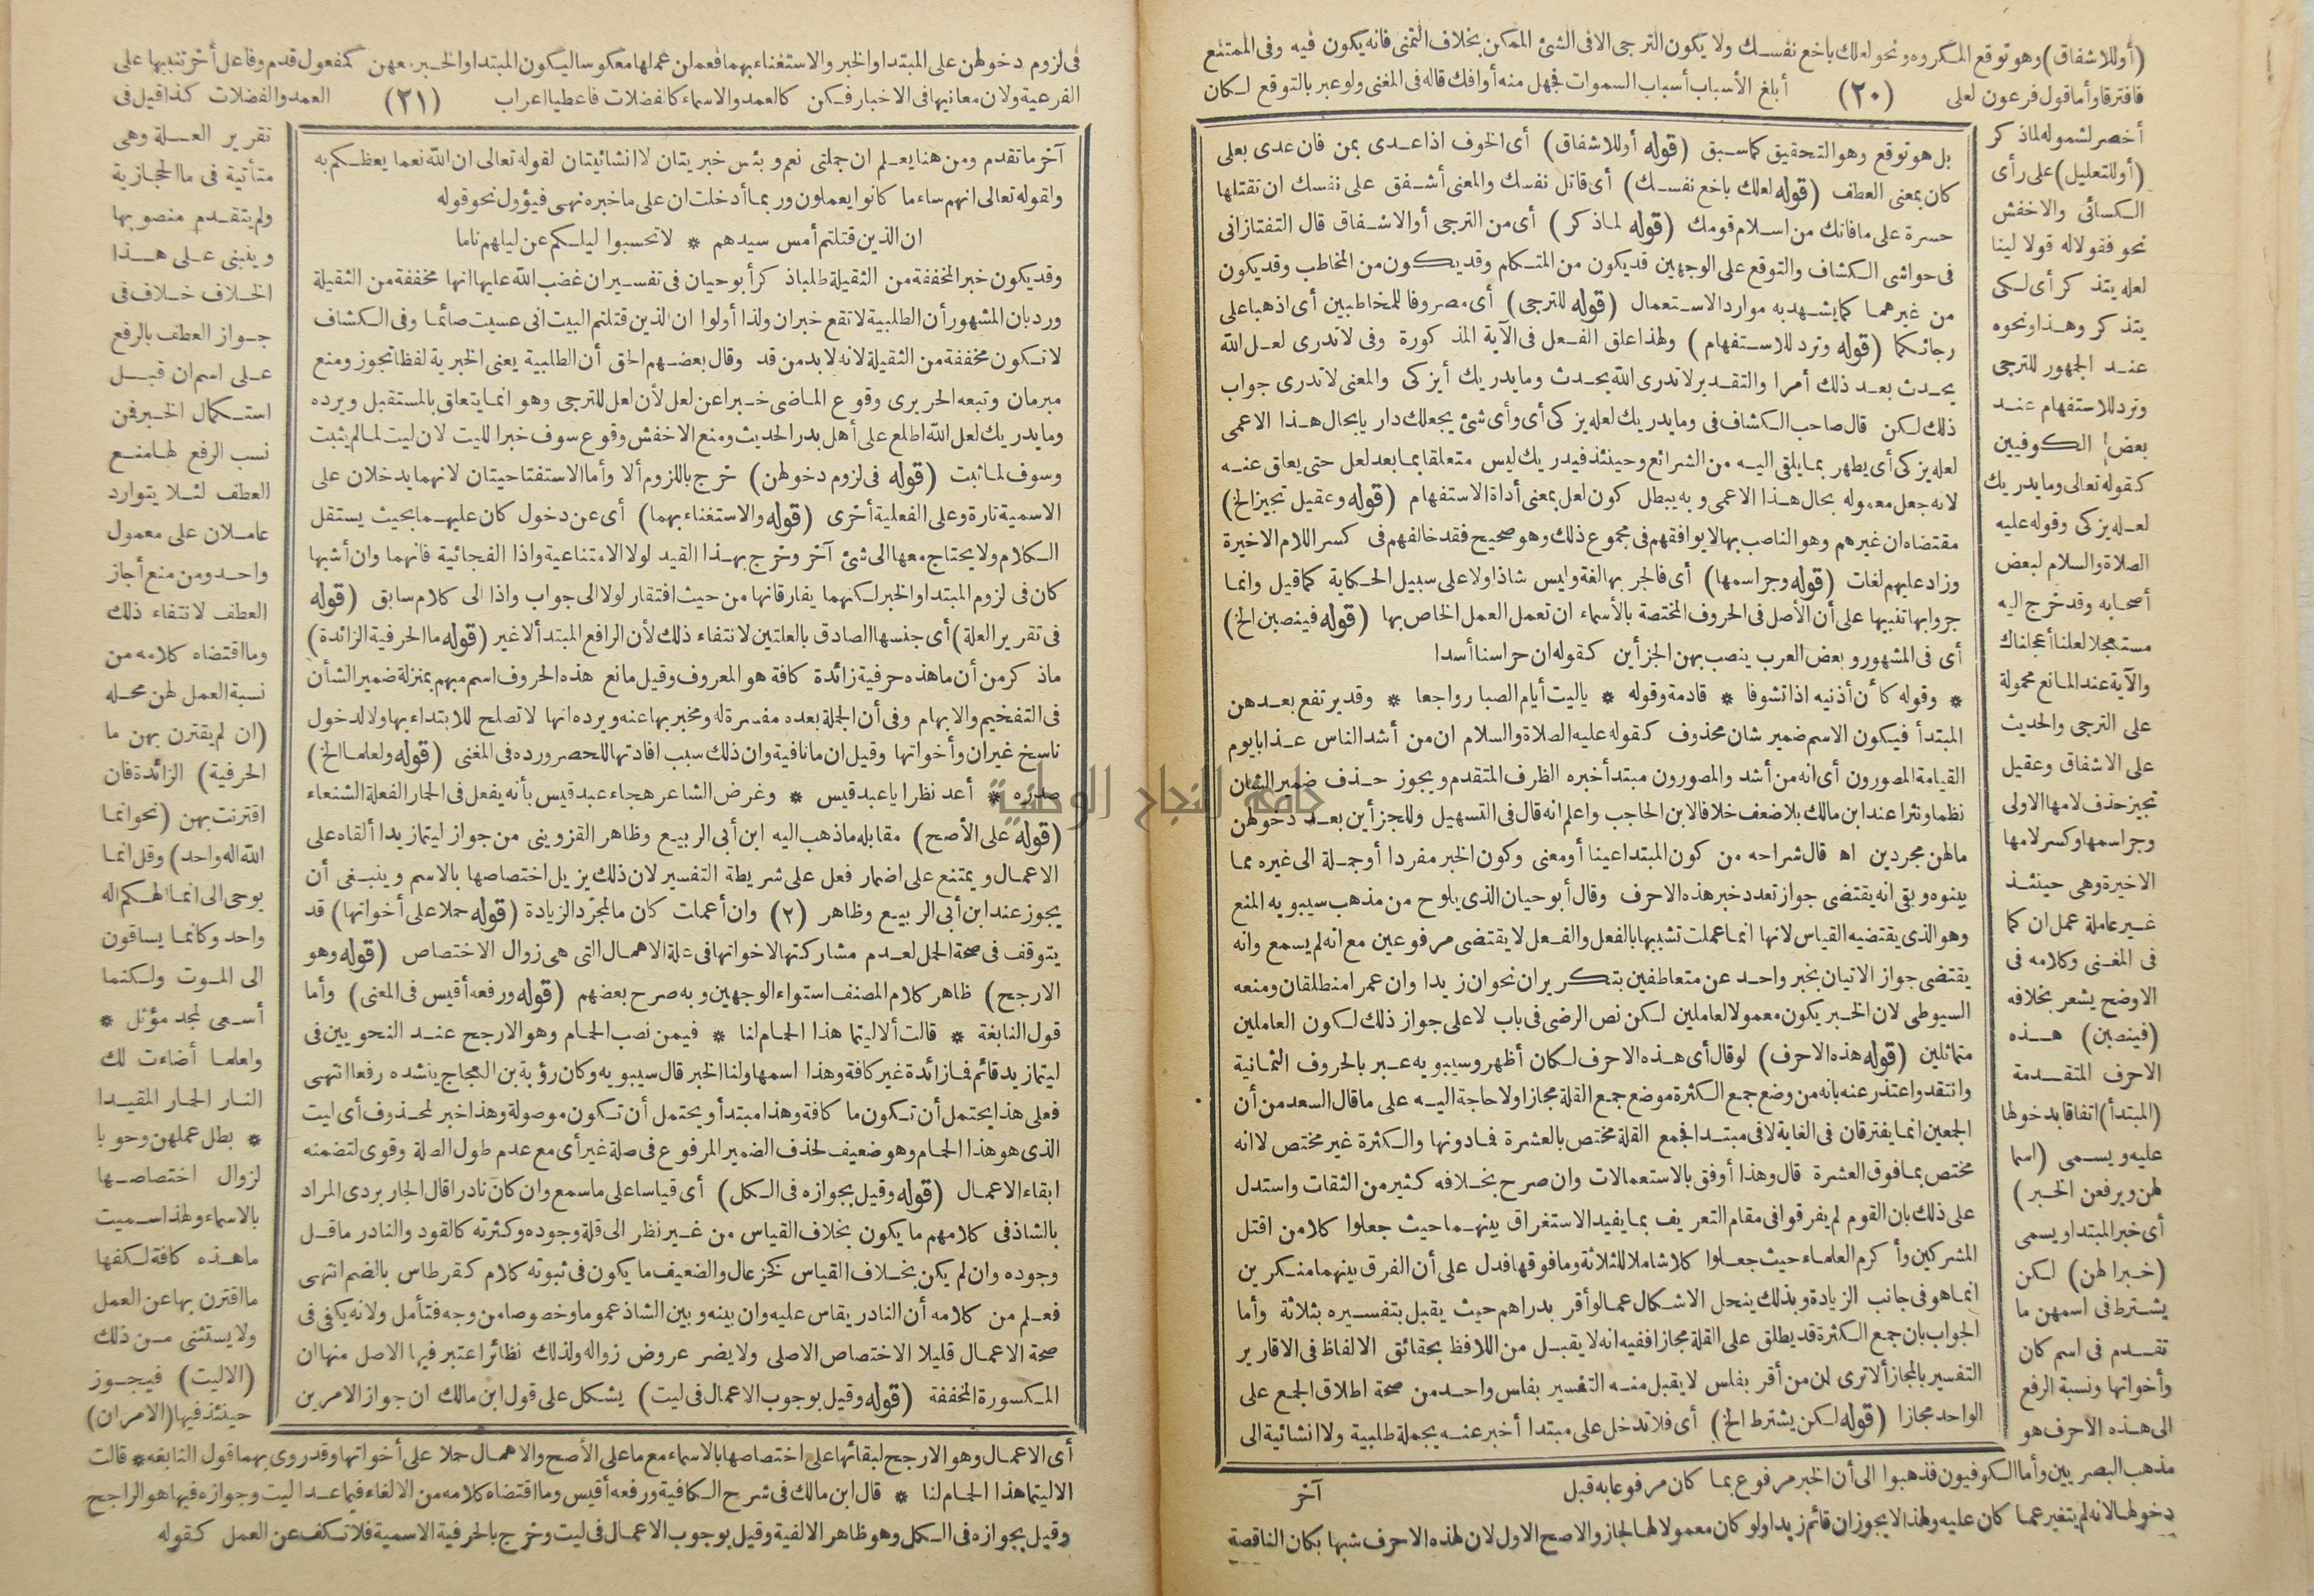 (أو للاشفاق) وهو توقع المكروه ونحو لعلك باخع نفسك ولا يكون الترجى الا فى الشئ الممكن بخلاف التمنى فانه يكون فيه وفى الممتنع
فافترقا وأما قول فرعون لعلى (٢٠) أبلغ الأسباب أسباب السموات فجهل منه أو افك قاله فى المغنى ولو عبر بالتوقع لكان
أخصر لشموله لماذكر
(أو للتعليل) على رأى
الكسائى والاخفش
نحو فقولا له قولا لينا
لعله يتذكر أى لكى
يتذكر وهذا ونحوه
عند الجمهور للترجى
وترد للاستفهام عند
بعض الكوفيين
كقوله تعالى وما يدريك
لعله يزكى وقوله عليه
الصلاة والسلام لبعض
أصحابه وقد خرج اليه
مستعجلا لعلنا أعجلناك
والآية عند المانع محمولة
على الترجى والحديث
على الاشفاق وعقيل
تجيز حذف لامها الاولى
وجر اسمها وكسر لامها
الاخيرة وهى حينئذ
غير عاملة عمل ان كما
فى المغنى وكلامه فى
الاوضح يشعر بخلافه
(فينصبن) هذه
الاحرف المتقدمة
(المبتدأ) اتفاقا بدخولها
عليه ويسمى (اسما
لهن ويرفعن الخبر)
أى خبر المبتدا ويسمى
(خبرا لهن) لكن
يشترط فى اسمهن ما
تقدم فى اسم كان
وأخواتها ونسبة الرفع
الى هذه الاحرف هو
مذهب البصريين وأما الكوفيون فذهبوا الى أن الخبر مرفوع بما كان مرفوعا به قبل
دخولها لانه لم يتغير عما كان عليه ولهذا لا يجوز ان قائم زيدا ولو كان معمولا لها لجاز والاصح الاول لان لهذه الاحرف شبها بكان الناقصة
بل هو توقع وهو التحقيق كما سبق (قوله أو للاشفاق) أى الخوف اذا عدى بمن فان عدى بعلى
كان بمعنى العطف (قوله لعلك باخع نفسك) أى قاتل نفسك والمعنى أشفق على نفسك ان تقتلها
حسرة على ما فاتك من اسلام قومك (قوله لماذكر) أى من الترجى أو الاشفاق قال التفتازانى
فى حواشى الكشاف والتوقع على الوجهين قد يكون من المتكلم وقد يكون من المخاطب وقد يكون
من غيرهما كما يشهد به موارد الاستعمال (قوله للترجى) أى مصروفا للمخاطبين أى اذهبا على
رجائكما (قوله وترد للاستفهام) ولهذا علق الفعل فى الآية المذكورة وفى لا تدرى لعل الله
يحدث بعد ذلك أمرا والتقدير لا تدرى الله يحدث وما يدريك أيزكى والمعنى لا تدرى جواب
ذلك لكن قال صاحب الكشاف فى وما يدريك لعله يزكى أى وأى شئ يجعلك داريا بحال هذا الاعمى
لعله يزكى أى يطهر بما يلقى اليه من الشرائع وحينئذ فيدريك ليس متعلقا بما بعد لعل حتى يعلق عنه
لانه جعل معموله بحال هذا الاعمى وبه يبطل كون لعل بمعنى أداة الاستفهام (قوله وعقيل تجيز الخ)
مقتضاه ان غيرهم وهو الناصب بها لا يوافقهم فى مجموع ذلك وهو صحيح فقد خالفهم فى كسر اللام الاخيرة
وزاد عليهم لغات (قوله وجر اسمها) أى فالجر بها لغة وليس شاذا ولا على سبيل الحكاية كما قيل وانما
جروا بها تنبيها على أن الأصل فى الحروف المختصة بالأسماء ان تعمل العمل الخاص بها (قوله فينصبن الخ)
أى فى المشهور وبعض العرب ينصب بهن الجزأين كقوله ان حراسنا أسدا
* وقوله كأن أذنيه اذا تشوفا * قادمة وقوله * ياليت أيام الصبا رواجعا * وقد يرتفع بعدهن
المبتدأ فيكون الاسم ضمير شان محذوف كقوله عليه الصلاة والسلام ان من أشد الناس عذابا يوم
القيامة المصورون أى انه من أشد والمصورون مبتدأ خبره الظرف المتقدم ويجوز حذف ضمير الشان
نظما ونثرا عند ابن مالك بلا ضعف خلافا لابن الحاجب واعلم انه قال فى التسهيل وللجزأين بعد دخولهن
مالهن مجردين اه قال شراحه من كون المبتدا عينا أو معنى وكون الخبر مفردا أو جملة الى غيره مما
بينوه وبقى انه يقتضى جواز تعدد خبر هذه الاحرف وقال أبو حيان الذى يلوح من مذهب سيبويه المنع
وهو الذى يقتضيه القياس لانها انما عملت تشبيها بالفعل والفعل لا يقتضى مرفوعين مع انه لم يسمع وانه
يقتضى جواز الاتيان بخبر واحد عن متعاطفين بتكرير ان نحو ان زيدا وان عمرا منطلقان ومنعه
السيوطى لان الخبر يكون معمولا لعاملين لكن نص الرضى فى باب لا على جواز ذلك لكون العاملين
متماثلين (قوله هذه الاحرف) لو قال أى هذه الاحرف لكان أظهر وسيبويه عبر بالحروف الثمانية
وانتقد واعتذر عنه بانه من وضع جمع الكثرة موضع جمع القلة مجازا ولا حاجة اليه على ما قال السعد من أن
الجمعين انما يفترقان فى الغاية لا فى مبتدا فجمع القلة مختص بالعشرة فمادونها والكثرة غير مختص لا انه
مختص بما فوق العشرة قال وهذا أوفق بالاستعمالات وان صرح بخلافه كثير من الثقات واستدل
على ذلك بان القوم لم يفرقوا فى مقام التعريف بما يفيد الاستغراق بينهما حيث جعلوا كلا من اقتل
المشركين وأكرم العلماء حيث جعلوا كلا شاملا للثلاثة وما فوقها فدل على أن الفرق بينهما منكرين
انما هو فى جانب الزيادة وبذلك ينحل الاشكال عما لو أقر بدراهم حيث يقبل بتفسيره بثلاثة وأما
الجواب بان جمع الكثرة قد يطلق على القلة مجازا ففيه انه لا يقبل من اللافظ بحقائق الالفاظ فى الاقارير
التفسير بالمجاز ألا ترى ان من أقر بفلس لا يقبل منه التفسير بفلس واحد من صحة اطلاق الجمع على
الواحد مجازا (قوله لكن يشترط الخ) أى فلا تدخل على مبتدا أخبر عنه بجملة طلبية ولا انشائية الى
آخر
فى لزوم دخولهن على المبتدا والخبر والاستغناء بهما فعملن عملها معكوسا ليكون المبتدا والخبر معهن كمفعول قدم وفاعل أخر تنبيها على
الفرعية ولان معانيها فى الاخبار فكن كالعمد والاسماء كالفضلات فاعطيا اعراب (٢١) العمد والفضلات كذا قيل فى
تقرير العلة وهى
متأتية فى ما الحجازية
ولم يتقدم منصوبها
وينبنى على هذا
الخلاف خلاف فى
جواز العطف بالرفع
على اسم ان قبل
استكمال الخبر فمن
نسب الرفع لها منع
العطف لئلا يتوارد
عاملان على معمول
واحد ومن منع أجاز
العطف لانتفاء ذلك
وما اقتضاه كلامه من
نسبة العمل لهن محله
(ان لم يقترن بهن ما
الحرفية) الزائدة فان
اقترنت بهن (نحو انما
الله اله واحد) وقل انما
يوحى الى انما الهكم اله
واحد وكانما يساقون
الى الموت ولكنما
أسعى لمجد مؤثل *
ولعلما أضاءت لك
النار الحمار المقيدا
* بطل عملهن وجوبا
لزوال اختصاصها
بالاسماء ولهذا سميت
ما هذه كافة لكفها
ما اقترن بها عن العمل
ولا يستثنى من ذلك
(الا ليت) فيجوز
حينئذ فيها (الامران)
أى الاعمال وهو الارجح لبقائها على اختصاصها بالاسماء مع ما على الأصح والاهمال حملا على أخواتها وقد روى بهما قول النابغة * قالت
الا ليتما هذا الحمام لنا * قال ابن مالك فى شرح الكافية ورفعه أقيس وما اقتضاه كلامه من الالغاء فيما عدا ليت وجوازه فيها هو الراجح
وقيل بجوازه فى الكل وهو ظاهر الالفية وقيل بوجوب الاعمال فى ليت وخرج بالحرفية الاسمية فلا تكف عن العمل كقوله
آخر ما تقدم ومن هنا يعلم ان جملتى نعم وبئس خبريتان لا انشائيتان لقوله تعالى ان الله نعما يعظكم به
ولقوله تعالى انهم ساء ما كانوا يعملون وربما أدخلت ان على ما خبره نهى فيؤول نحو قوله
ان الذين قتلتم أمس سيدهم * لا تحسبوا ليلكم عن ليلهم ناما
وقد يكون خبر المخففة من الثقيلة طلبا ذكر أبو حيان فى تفسير ان غضب الله عليها انها مخففة من الثقيلة
ورد بان المشهور أن الطلبية لا تقع خبر ان ولذا أولوا ان الذين قتلتم البيت انى عسيت صائما وفى الكشاف
لا تكون مخففة من الثقيلة لانه لا بد من قد وقال بعضهم الحق أن الطلبية يعنى الخبرية لفظا تجوز ومنع
مبرمان وتبعه الحريرى وقوع الماضى خبرا عن لعل لأن لعل للترجى وهو انما يتعلق بالمستقبل ويرده
وما يدريك لعل الله اطلع على أهل بدر الحديث ومنع الاخفش وقوع سوف خبرا لليت لان ليت لما لم يثبت
وسوف لما ثبت (قوله فى لزوم دخولهن) خرج باللزوم ألا وأما الاستفتاحيتان لانهما يدخلان على
الاسمية تارة وعلى الفعلية أخرى (قوله والاستغناء بهما) أى عن دخول كان عليهما بحيث يستقل
الكلام ولا يحتاج معها الى شئ آخر وخرج بهذا القيد لولا الامتناعية واذا الفجائية فانهما وان أشبها
كان فى لزوم المبتدا والخبر لكنهما يفارقانها من حيث افتقار لولا الى جواب واذا الى كلام سابق (قوله
فى تقرير العلة) أى جنسها الصادق بالعلتين لانتفاء ذلك لأن الرافع المبتدأ لا غير (قوله ما الحرفية الزائدة)
ماذكر من أن ما هذه حرفية زائدة كافة هو المعروف وقيل ما نع هذه الحروف اسم مبهم بمنزلة ضمير الشأن
فى التفخيم والابهام وفى أن الجملة بعده مفسرة له ومخبر بها عنه ويرده انها لا تصلح للابتداء بها ولا لدخول
ناسخ غير ان وأخواتها وقيل ان ما نافية وان ذلك سبب افادتها للحصر ورده فى المغنى (قوله ولعلما الخ)
صدره * أعد نظرا يا عبد قيس * وغرض الشاعر هجاء عبد قيس بأنه يفعل فى الحمار الفعلة الشنعاء
(قوله على الأصح) مقابله ما ذهب اليه ابن أبى الربيع وظاهر القزوينى من جواز ليتما زيدا ألقاه على
الاعمال ويمتنع على اضمار فعل على شريطة التفسير لان ذلك يزيل اختصاصها بالاسم وينبغى أن
يجوز عند ابن أبى الربيع وظاهر (٢) وان أعملت كان ما لمجرد الزيادة (قوله حملا على أخواتها) قد
يتوقف فى صحة الحمل لعدم مشاركتها لاخواتها فى علة الاهمال التى هى زوال الاختصاص (قوله وهو
الارجح) ظاهر كلام المصنف استواء الوجهين وبه صرح بعضهم (قوله ورفعه أقيس فى المعنى) وأما
قول النابغة * قالت ألا ليتما هذا الحمام لنا * فيمن نصب الحمام وهو الارجح عند النحويين فى
ليتما زيد قائم فما زائدة غير كافة وهذا اسمها ولنا الخبر قال سيبويه وكان رؤبة بن العجاج ينشده رفعا انتهى
فعلى هذا يحتمل أن تكون ما كافة وهذا مبتدأ ويحتمل أن تكون موصولة وهذا خبر لمحذوف أى ليت
الذى هو هذا الحمام وهو ضعيف لحذف الضمير المرفوع فى صلة غير أى مع عدم طول الصلة وقوى لتضمنه
ابقاء الاعمال (قوله وقيل بجوازه فى الكل) أى قياسا على ما سمع وان كان نادرا قال الجاربردى المراد
بالشاذ فى كلامهم ما يكون بخلاف القياس من غير نظر الى قلة وجوده وكثرته كالقود والنادر ما قل
وجوده وان لم يكن بخلاف القياس كخزعال والضعيف ما يكون فى ثبوته كلام كقرطاس بالضم انتهى
فعلم من كلامه أن النادر يقاس عليه وان بينه وبين الشاذ عموما وخصوصا من وجه فتأمل ولانه يكفى فى
صحة الاعمال قليلا الاختصاص الاصلى ولا يضر عروض زواله ولذلك نظائر اعتبر فيها الاصل منها ان
المكسورة المخففة (قوله وقيل بوجوب الاعمال فى ليت) يشكل على قول ابن مالك ان جواز الامرين
جامعة النجاح الوطنية